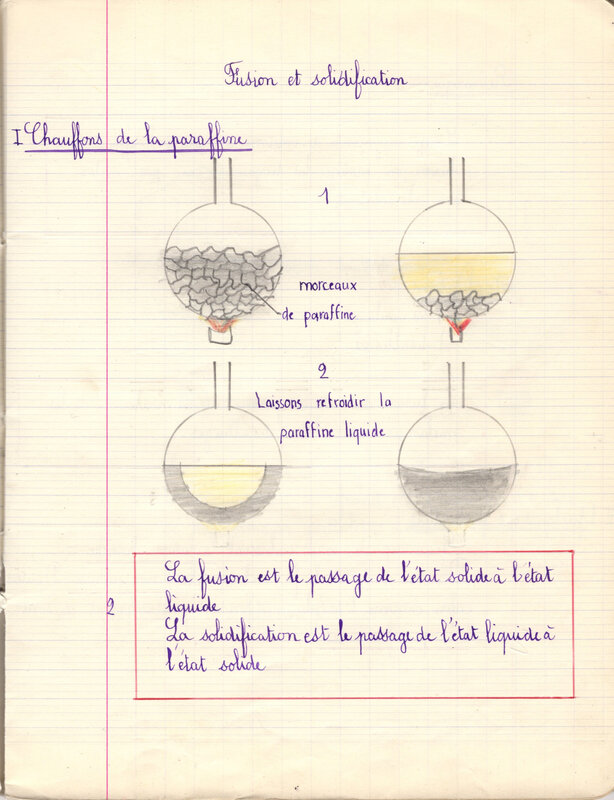 Fusion et solidification
I Chauffons de la paraffine
1
morceaux
de paraffine
2
Laissons refroidir la
paraffine liquide
La fusion est le passage de l'état solide à l'état
2
liquide
La solidification est le passage de l'état liquide à
l'état solide